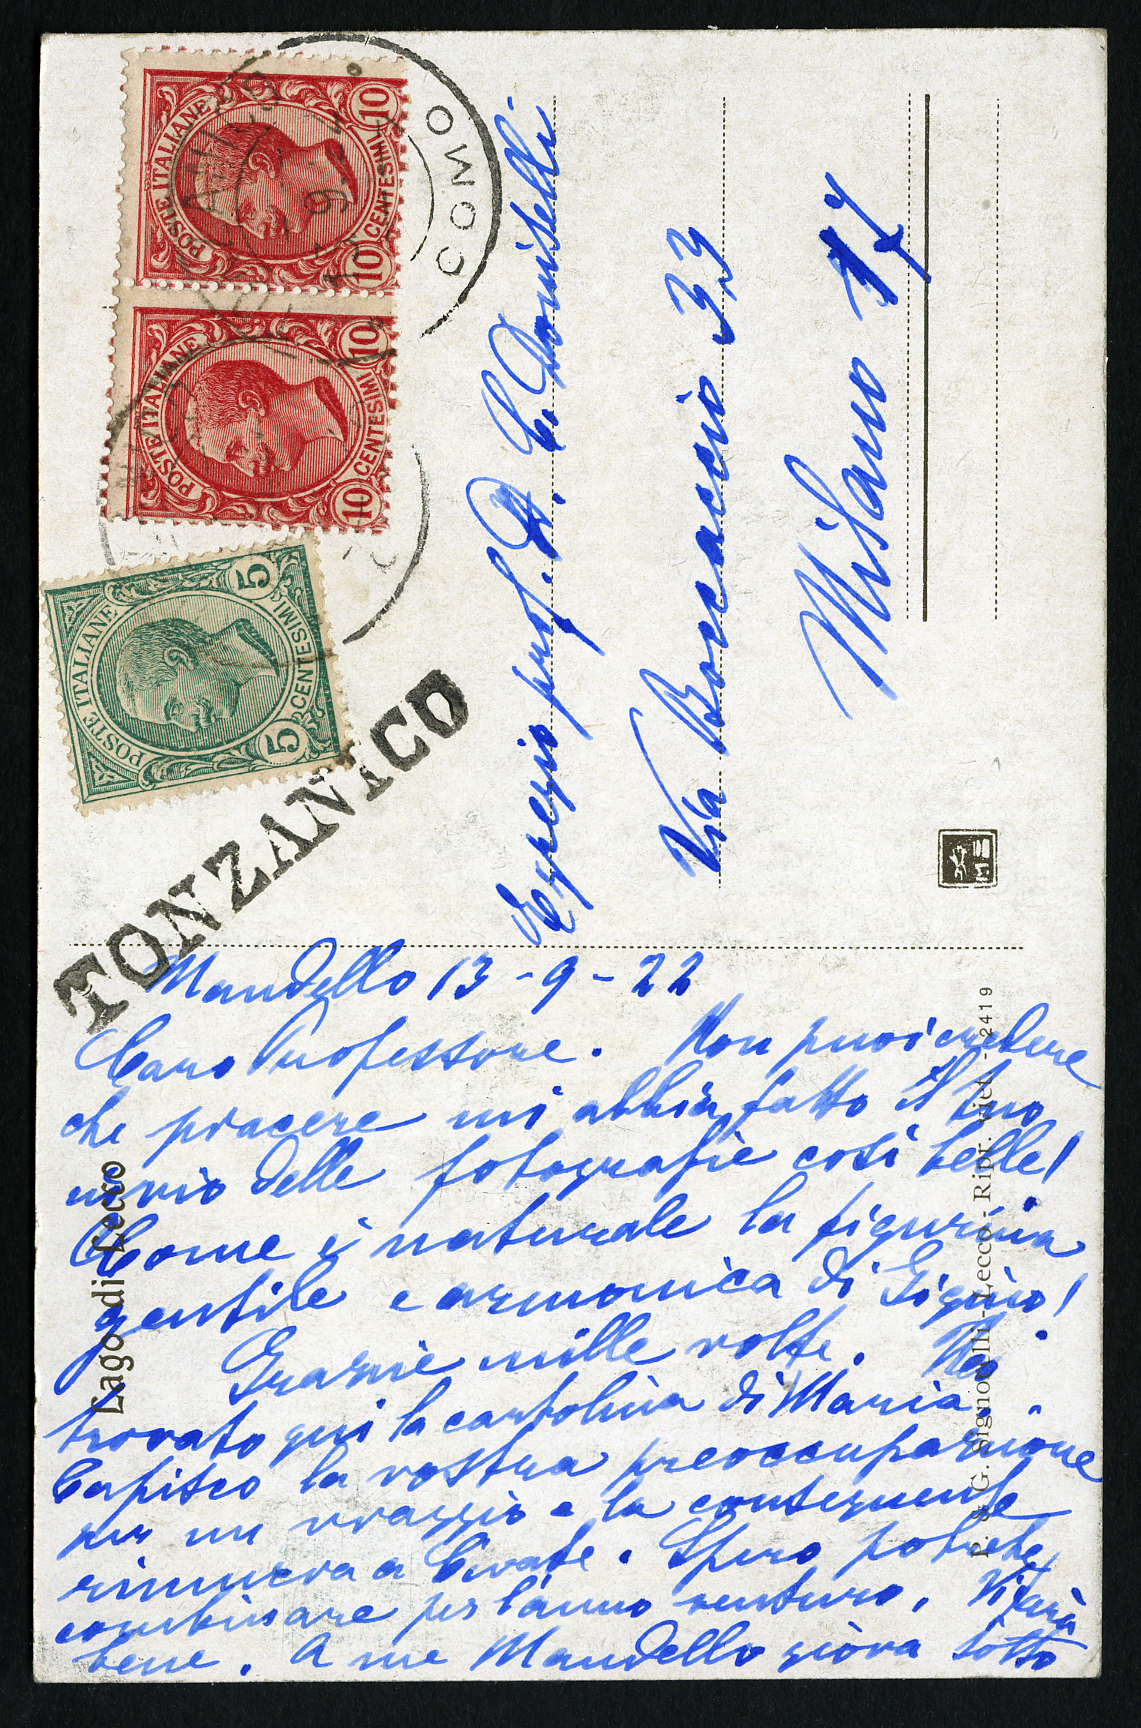 POSTE ITALIANE
10 CENTESIMI 10
POSTE ITALIANE
10 CENTESIMI 10
POSTE ITALIANE
5 CENTESIMI 5
COMO
TONZANICO
Egregio prof. A. C. Doniselli
Via Boccaccio 33
Milano 17
Mandello 13-9-22
Caro Professore. Non puoi credere
che piacere mi abbia fatto il tuo
invio delle fotografie così belle!
Come è naturale la figurina
gentile e armonica di Gigino!
Grazie mille volte. Ho
trovato qui la cartolina di Maria.
Capisco la vostra preoccupazione
per un viaggio e la conseguente
rinuncia a Civate. Spero potrete
combinare per l'anno venturo. Vi farà
bene. A me Mandello giova sotto
Lago di Lecco
P. & G. Signorelli - Lecco - Ripr. viet. - 2419